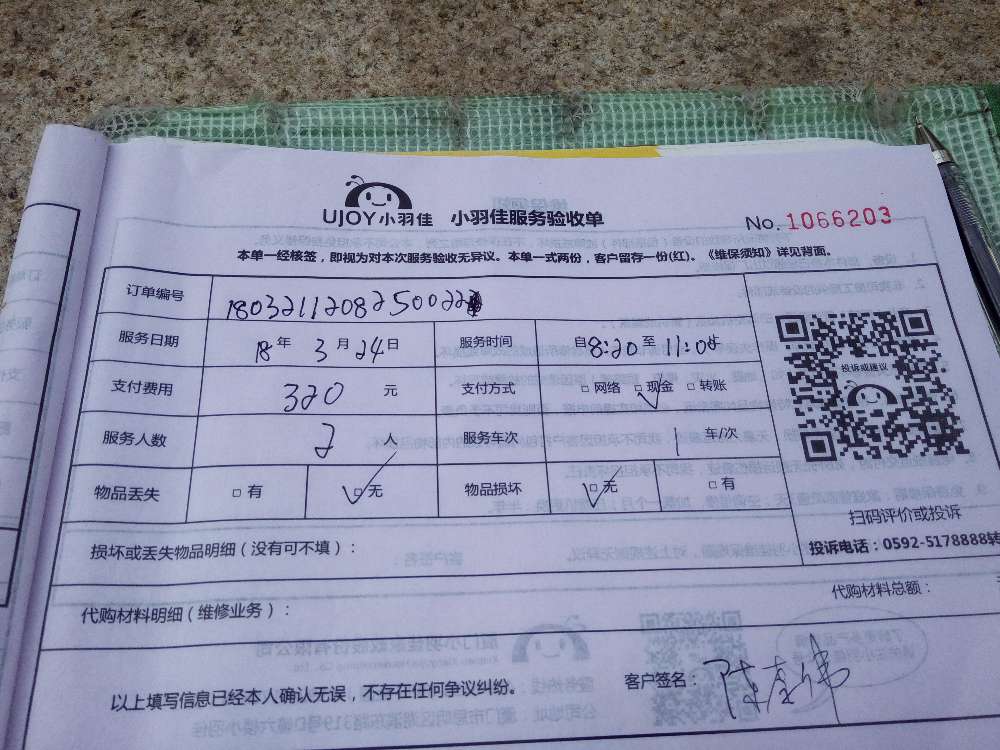 UJOY小羽佳 小羽佳服务验收单
No. 1066203
本单一经核签，即视为对本次服务验收无异议。本单一式两份，客户留存一份(红)。《维保须知》详见背面。
订单编号 180321120825002
服务日期 18年3月24日 服务时间 自8:20至11:05
支付费用 320 元 支付方式 □网络 □现金 □转账
服务人数 2 服务车次 1 车/次
物品丢失 □有 □无 物品损坏 □无 □有
投诉或建议
扫码评价或投诉
投诉电话：0592-5178888转
损坏或丢失物品明细（没有可不填）：
代购材料明细（维修业务）：
代购材料总额：
以上填写信息已经本人确认无误，不存在任何争议纠纷。
客户签名：